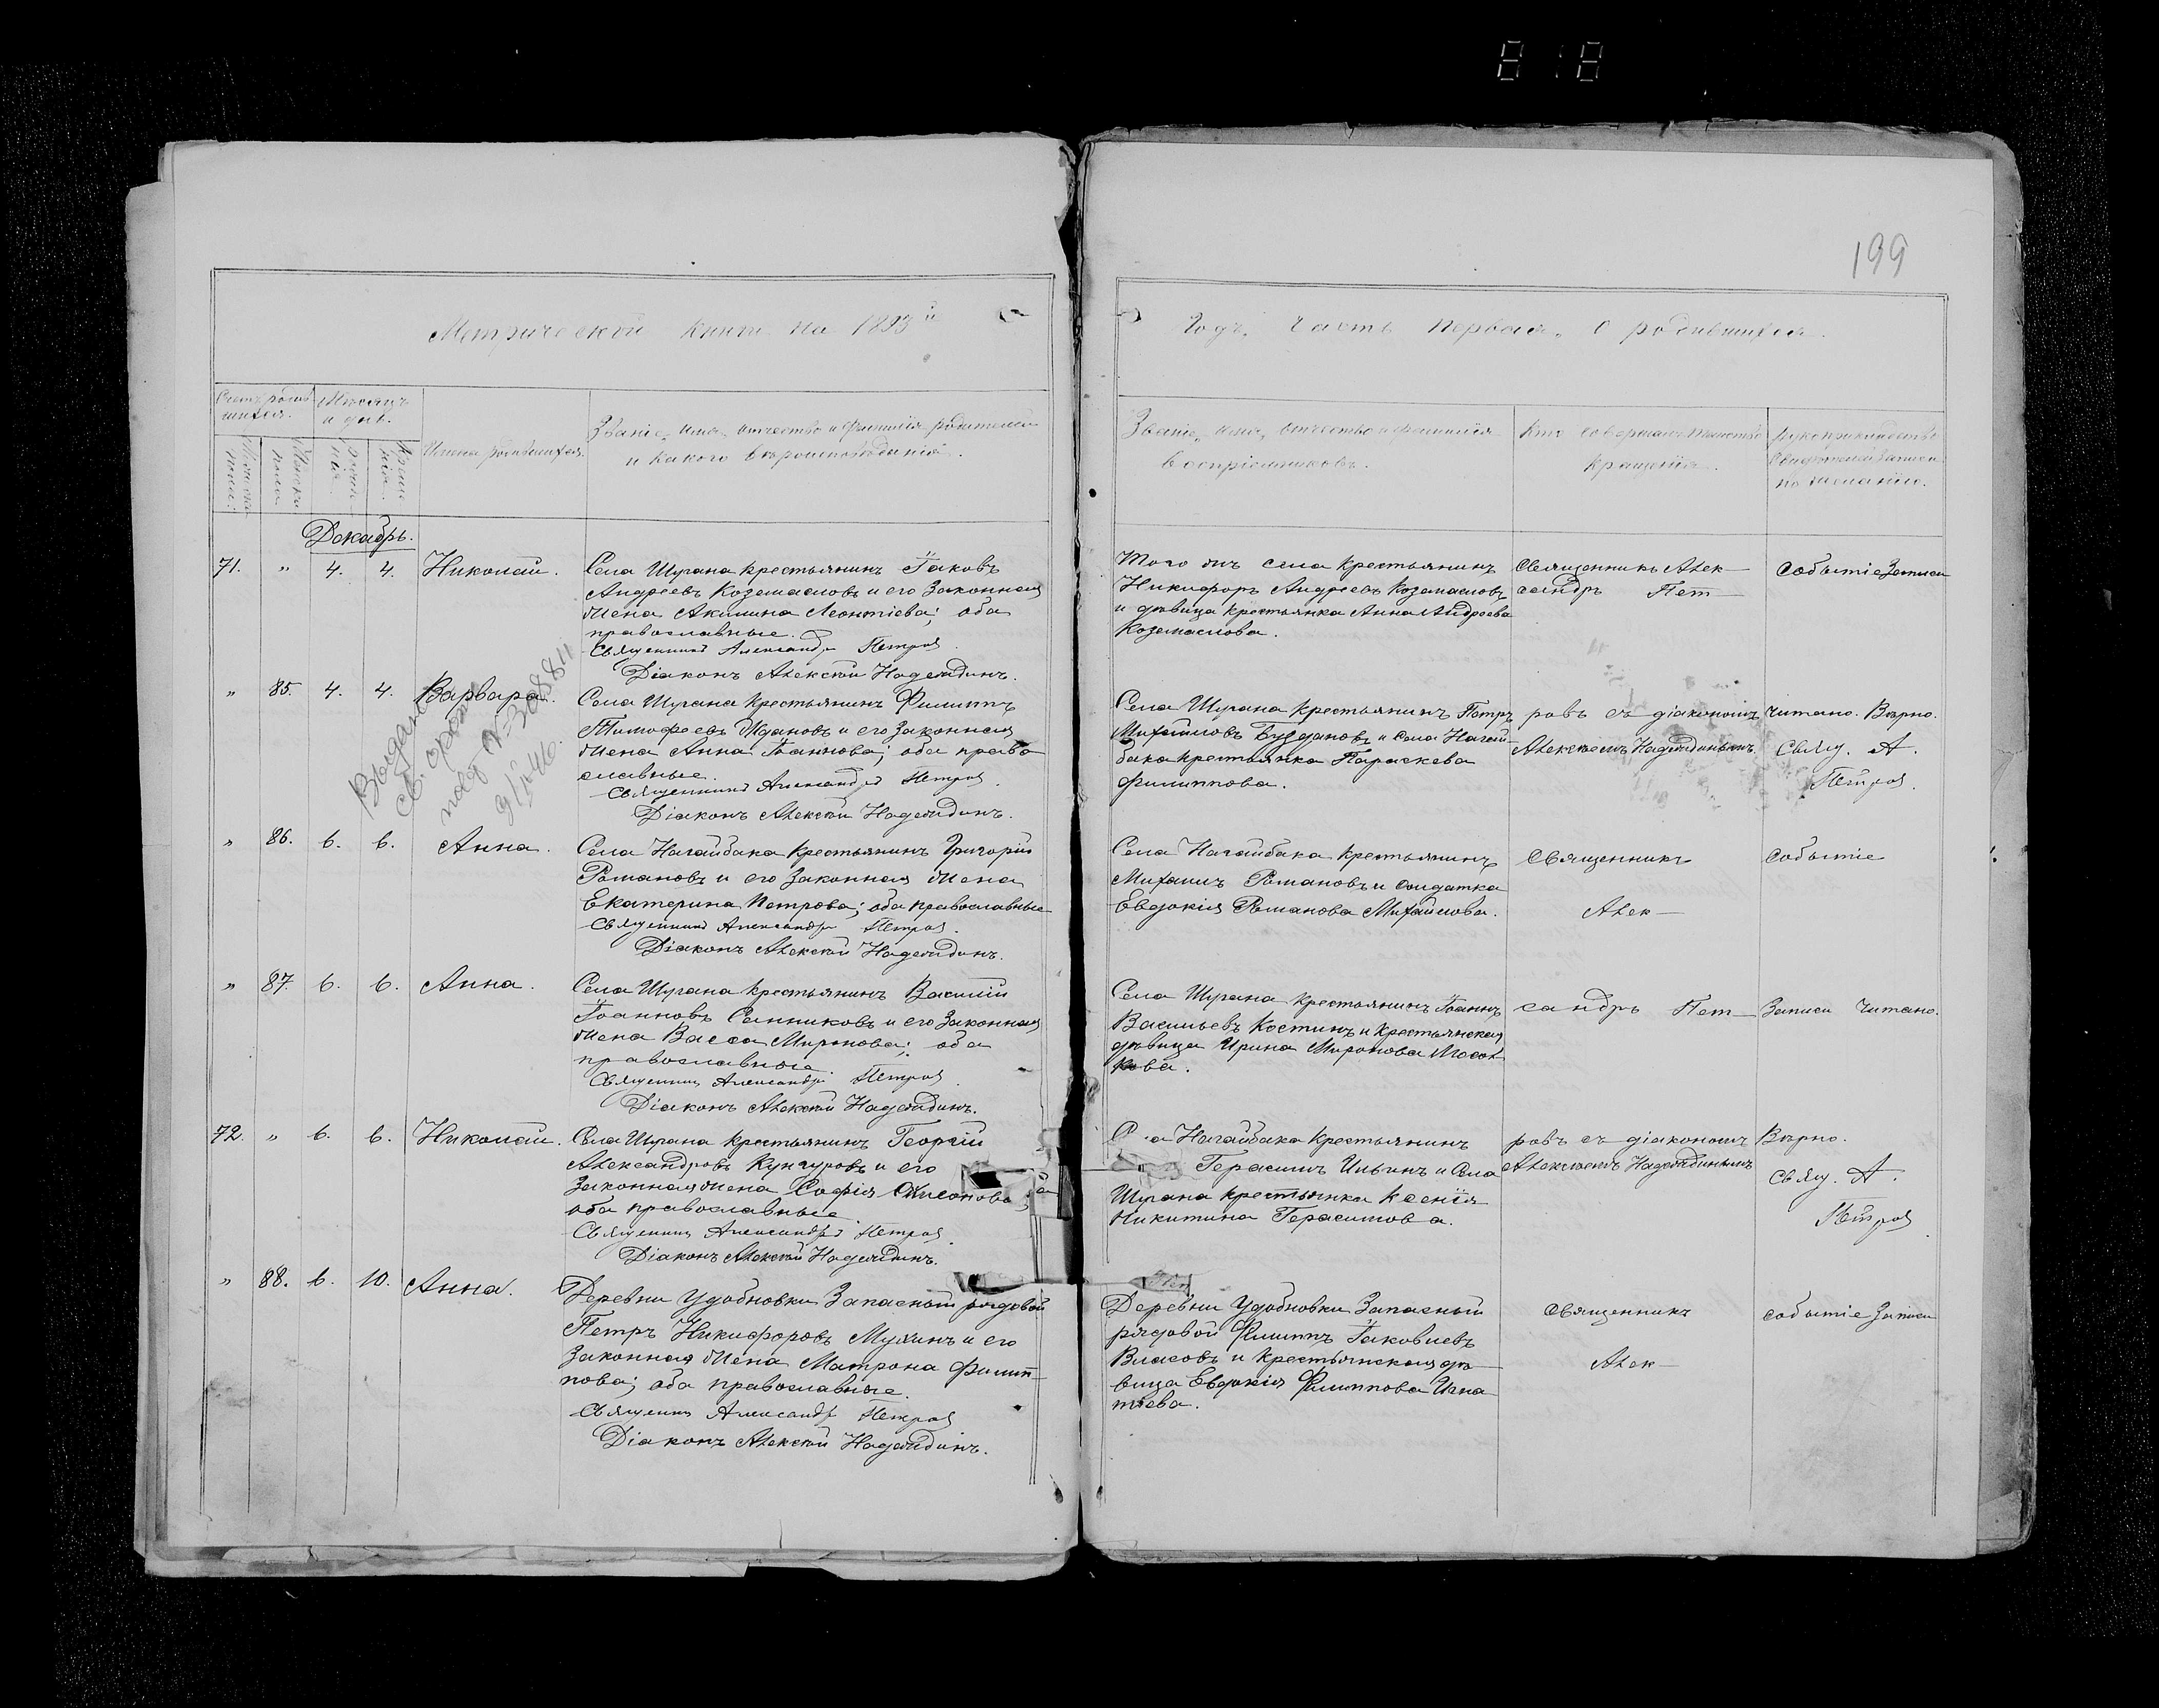 199
Метрической книги на 1893 й
Годъ. Часть первая, о родившихся.
Счетъ родив
шихся.
Мѣсяцъ
и день.
Имена родившихся.
Званіе, имя, отчество и фамилія родителей
и какого вѣроисповѣданія.
Званіе, имя, отчество и фамилія
воспріемниковъ.
Кто совершалъ таинство
крещенія.
Рукоприкладство
свидѣтелей записи
по желанію.
Декабрь.
71. " 4. 4. Николай.
Села Шугана крестьянинъ Іаковъ
Андреевъ Козомасловъ и его законная
жена Акилина Леонтіева; оба
православные.
Священникъ Александръ Петровъ.
Діаконъ Алексѣй Надеждинъ.
Того жъ села крестьянинъ
Никифоръ Андреевъ Козомасловъ
и дѣвица крестьянка Анна Андреева
Козомаслова.
Священникъ Алек-
сандръ Пет-
Событіе записи
" 85. 4. 4. Варвара.
Выдано
св. о рожд
№ 308811
9/
46.
Села Шугана крестьянинъ Филиппъ
Тимофеевъ Ждановъ и его законная
жена Анна Іоаннова; оба право
славные.
Священникъ Александръ Петровъ.
Діаконъ Алексѣй Надеждинъ.
Села Шугана крестьянинъ Петръ
Михайловъ Бузодановъ и села Нагай-
бака крестьянка Параскева
Филиппова.
ровъ съ діакономъ
Алексѣемъ Надеждинымъ
Читано. Вѣрно.
Свящ. А.
Петровъ.
" 86. 6. 6. Анна.
Села Нагайбака крестьянинъ Григорій
Романовъ и его законная жена
Екатерина Петрова; оба православные
Священникъ Александръ Петровъ.
Діаконъ Алексѣй Надеждинъ.
Села Нагайбака крестьянинъ
Михаилъ Романовъ и солдатка
Евдокія Романова Михайлова.
Священникъ
Алек-
событіе
" 87. 6. 6. Анна.
Села Шугана крестьянинъ Василій
Іоанновъ Санниковъ и его законная
жена Васса Миронова; оба
православные.
Священникъ Александръ Петровъ.
Діаконъ Алексѣй Надеждинъ.
Села Шугана крестьянинъ Іоаннъ
Васильевъ Костинъ и крестьянская
дѣвица Ирина Миронова
кова.
сандръ Пет-
Записи читано.
72. " 6. 6. Николай.
Села Шугана крестьянинъ Георгій
Александровъ Кунгуровъ и его
законная жена Софія
оба православные.
Священникъ Александръ Петровъ.
Діаконъ Алексѣй Надеждинъ.
Нагайбака крестьянинъ
Герасимъ Ильинъ и села
Шугана крестьянка Ксенія
Никитина Герасимова.
ровъ съ діакономъ
Алексѣемъ Надеждинымъ
Вѣрно.
Свящ. А.
Петровъ.
" 88. 6. 10. Анна.
Деревни Удобновки запасный рядовой
Петръ Никифоровъ Мулинъ и его
законная жена Матрона Филип-
пова; оба православные.
Священникъ Александръ Петровъ
Діаконъ Алексѣй Надеждинъ.
Деревни Удобновки запасный
рядовой Филиппъ Іаковлевъ
Власовъ и крестьянская дѣ-
вица Евдокія Филиппова Игна
тіева.
Священникъ
Алек-
событіе записи